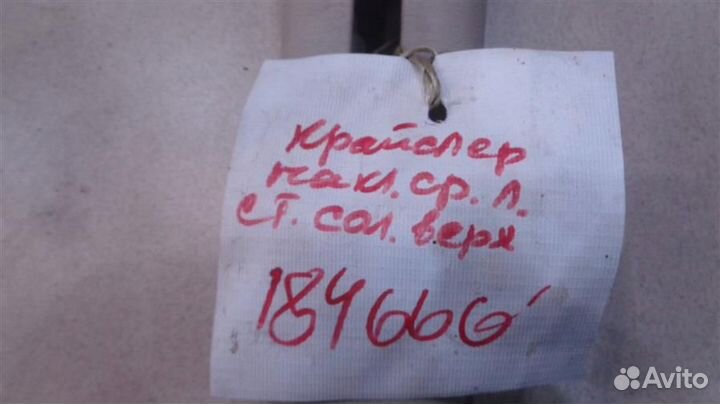 крайслер
накл. ср. л.
ст. сал. верх
184666
Avito